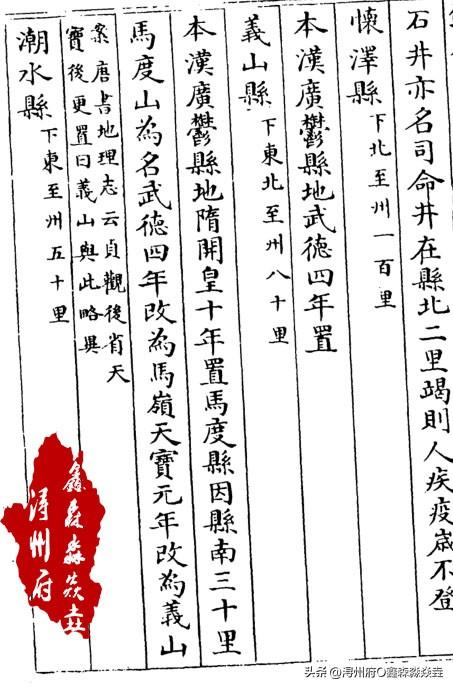 石井亦名司命井在縣北二里竭則人疾疫歲不登
懷澤縣下北至州一百里
本漢廣鬱縣地武德四年置
義山縣下東北至州八十里
本漢廣鬱縣地隋開皇十年置馬度縣因縣南三十里
馬度山為名武德四年改為馬嶺天寶元年改為義山
案唐書地理志云貞觀後省天
寶後更置曰義山與此略異
潮水縣下東至州五十里
鑫森淼焱垚
潯州府
头条 @浔州府O鑫森淼焱垚